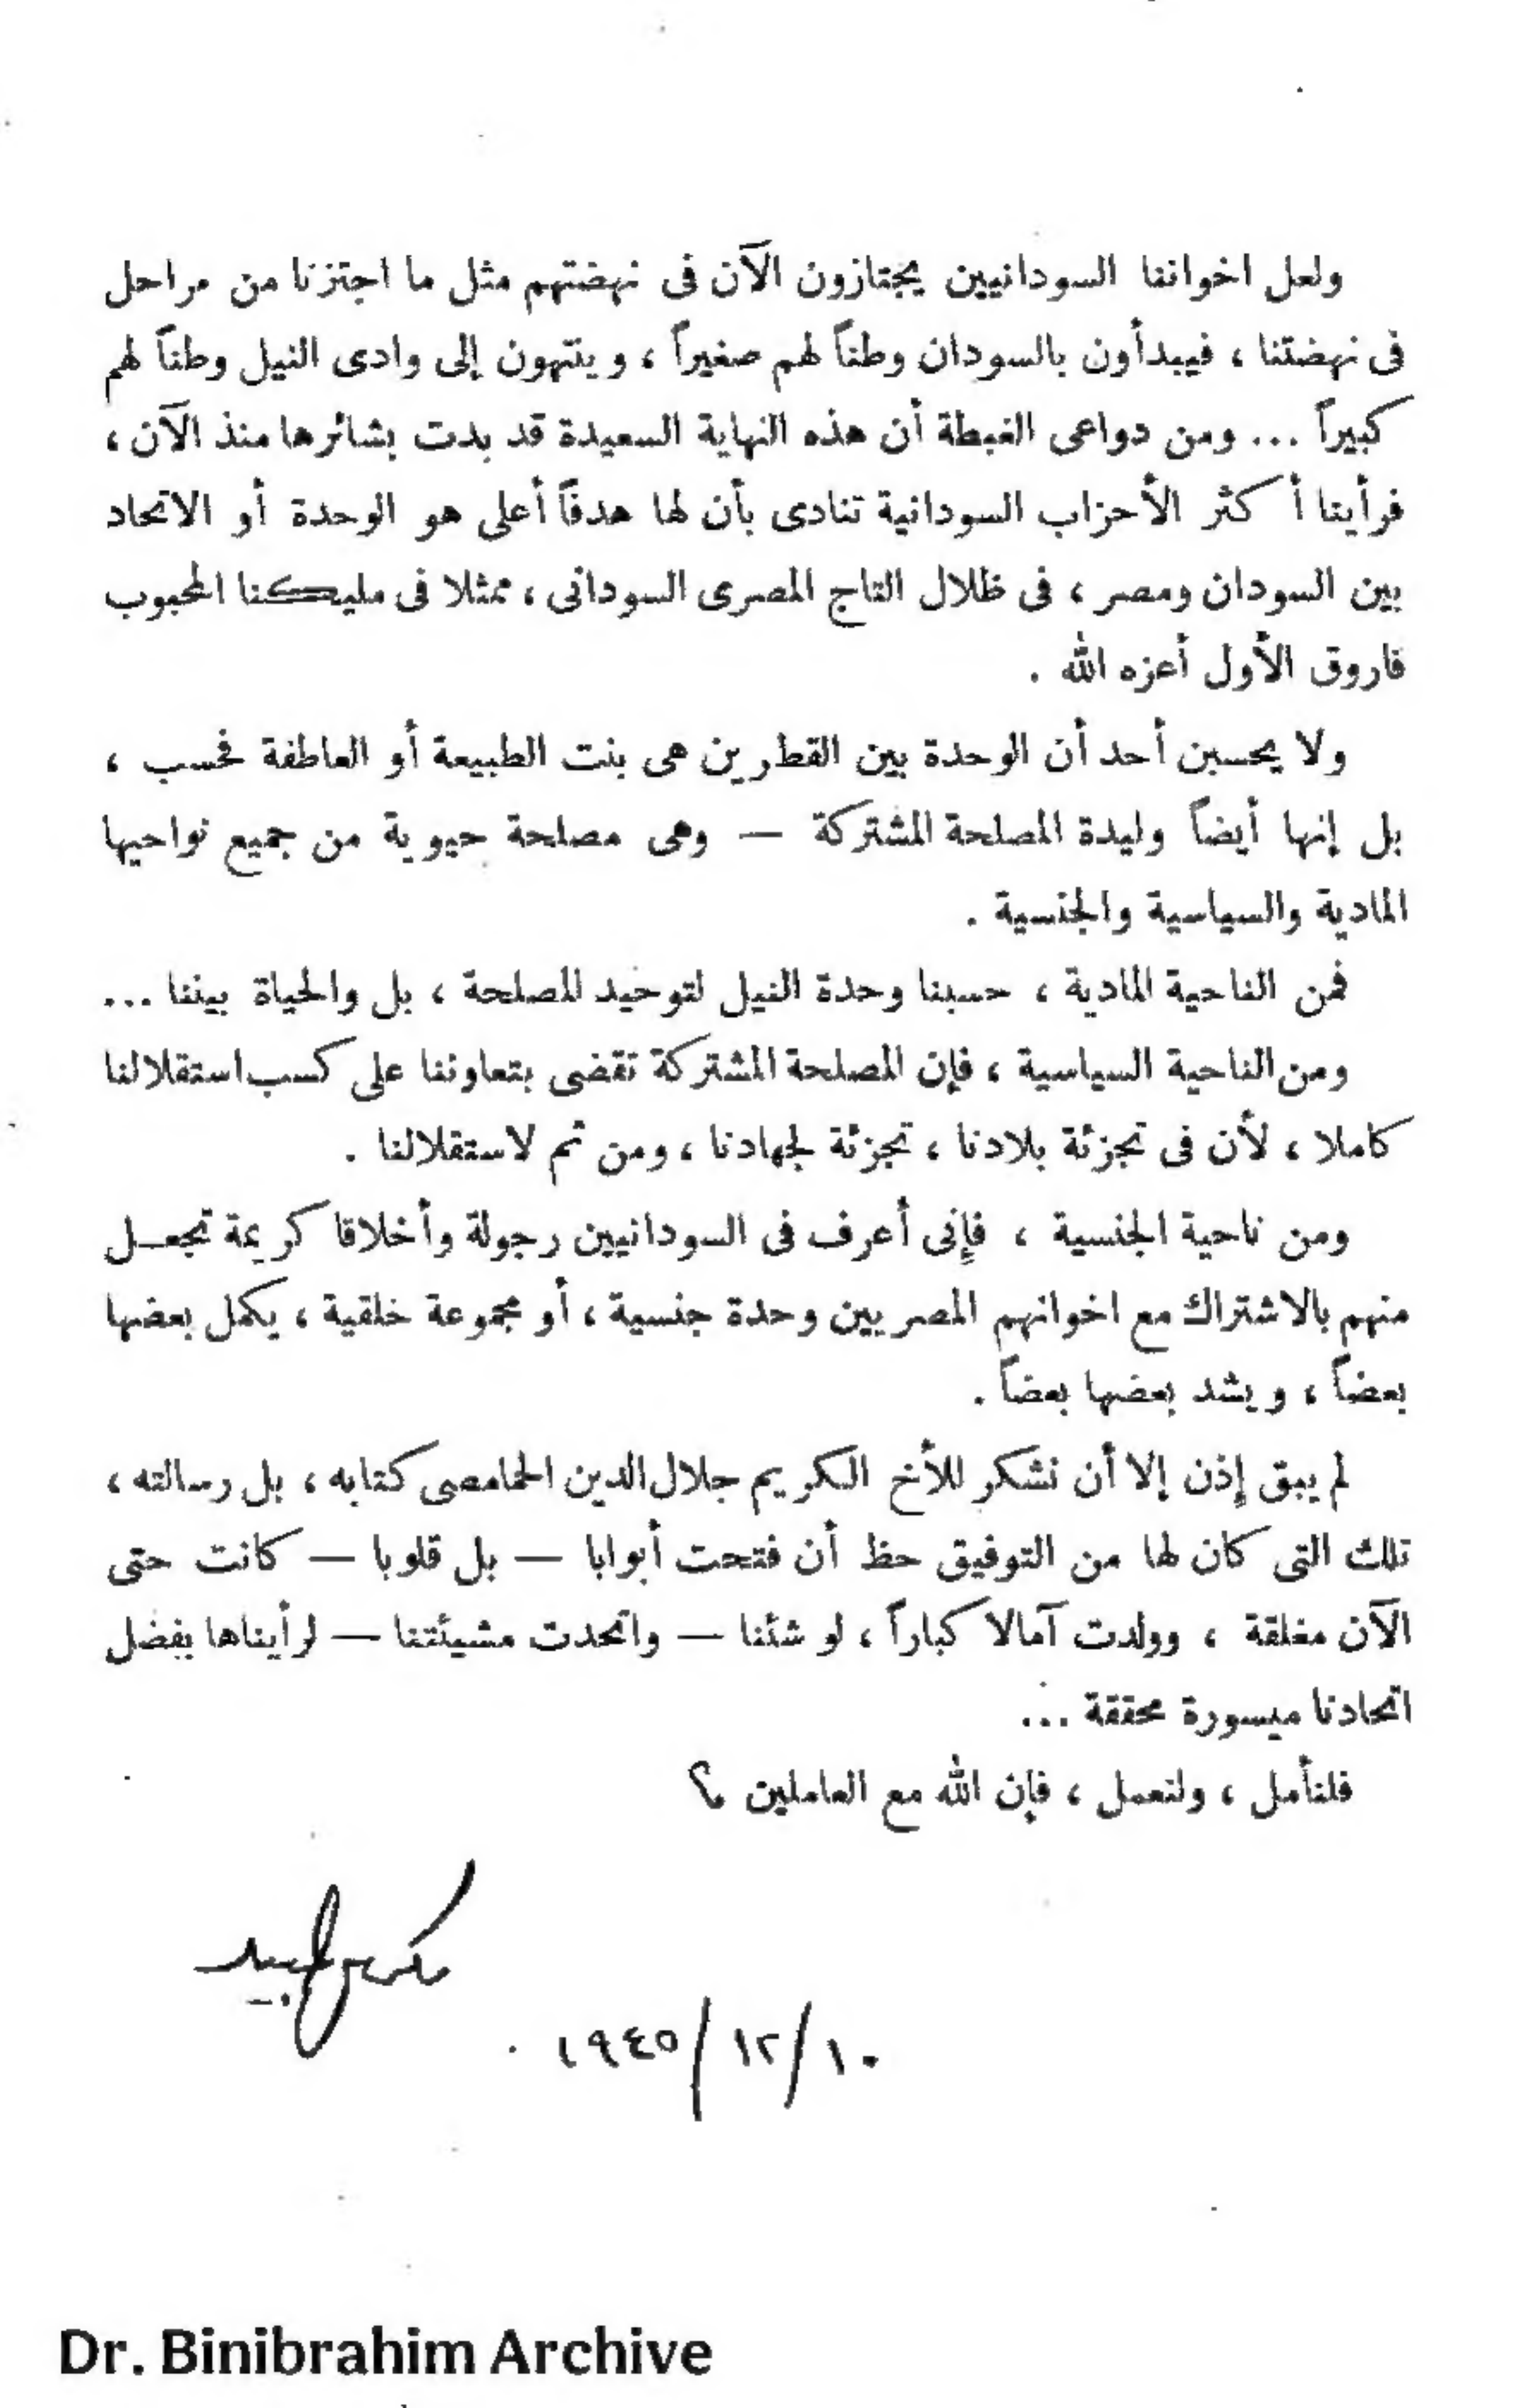 ولعل اخواننا السودانيين يجتازون الآن فى نهضتهم مثل ما اجتزنا من مراحل
فى نهضتنا ، فيبدأون بالسودان وطناً لهم صغيراً ، وينتهون إلى وادى النيل وطناً لهم
كبيراً ... ومن دواعى الغبطة أن هذه النهاية السعيدة قد بدت بشائرها منذ الآن ،
فرأينا أكثر الأحزاب السودانية تنادى بأن لها هدفاً أعلى هو الوحدة أو الاتحاد
بين السودان ومصر ، فى ظلال التاج المصرى السودانى ، ممثلا فى مليكنا المحبوب
فاروق الأول أعزه الله .
ولا يحسبن أحد أن الوحدة بين القطرين هى بنت الطبيعة أو العاطفة فحسب ،
بل إنها أيضاً وليدة المصلحة المشتركة — وهى مصلحة حيوية من جميع نواحيها
المادية والسياسية والجنسية .
فمن الناحية المادية ، حسبنا وحدة النيل لتوحيد للمصلحة ، بل والحياة بيننا ...
ومن الناحية السياسية ، فإن المصلحة المشتركة تقضى بتعاوننا على كسب استقلالنا
كاملا ، لأن فى تجزئة بلادنا ، تجزئة لجهادنا ، ومن ثم لاستقلالنا .
ومن ناحية الجنسية ، فإنى أعرف فى السودانيين رجولة وأخلاقا كريمة تجعل
منهم بالاشتراك مع اخوانهم المصريين وحدة جنسية ، أو مجموعة خلقية ، يكمل بعضها
بعضاً ، ويشد بعضها بعضاً .
لم يبق إذن إلا أن نشكر للأخ الكريم جلال الدين الحامصى كتابه ، بل رسالته ،
تلك التى كان لها من التوفيق حظ أن فتحت أبوابا — بل قلوبا — كانت حتى
الآن مغلقة ، وولدت آمالا كباراً ، لو شئنا — واتحدت مشيئتنا — لرأيناها بفضل
اتحادنا ميسورة محققة ...
فلنأمل ، ولنعمل ، فإن الله مع العاملين ؟
مكرم عبيد
١٠/١٢/١٩٤٥
Dr. Binibrahim Archive